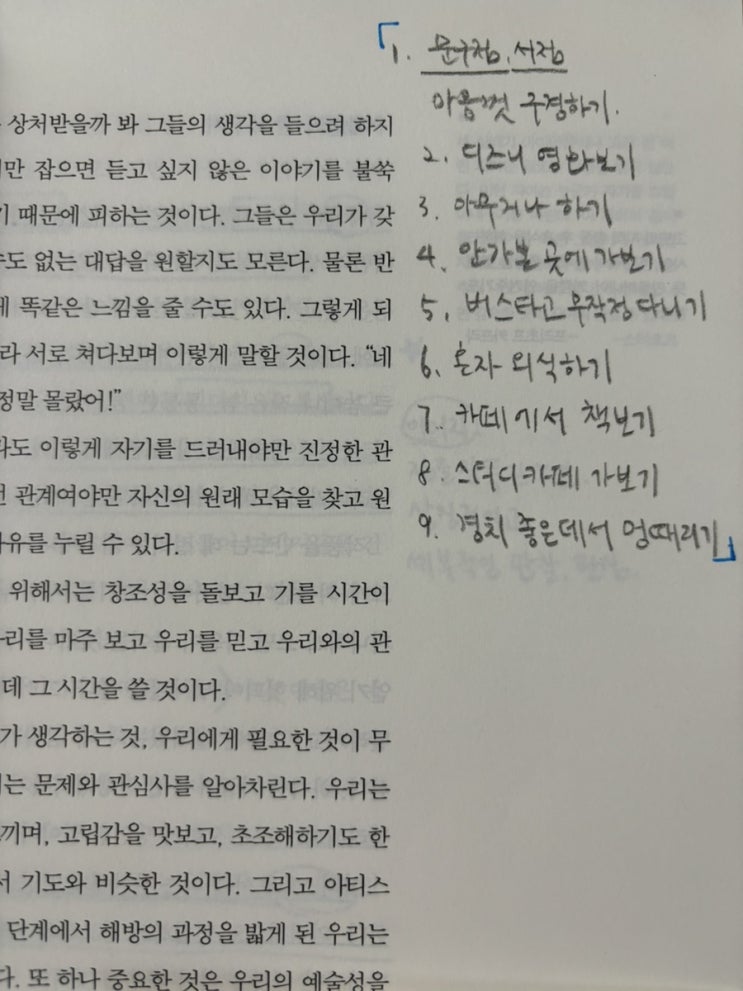 상처받을까 봐 그들의 생각을 들으려 하지
잡으면 듣고 싶지 않은 이야기를 불쑥
때문에 피하는 것이다. 그들은 우리가 갖
없는 대답을 원할지도 모른다. 물론 반
똑같은 느낌을 줄 수도 있다. 그렇게 되
서로 쳐다보며 이렇게 말할 것이다. “네
정말 몰랐어!”
이렇게 자기를 드러내야만 진정한 관
관계여야만 자신의 원래 모습을 찾고 원
누릴 수 있다.
위해서는 창조성을 돌보고 기를 시간이
마주 보고 우리를 믿고 우리와의 관
데 그 시간을 쓸 것이다.
가 생각하는 것, 우리에게 필요한 것이 무
문제와 관심사를 알아차린다. 우리는
고립감을 맛보고, 초조해하기도 한
기도와 비슷한 것이다. 그리고 아티스
단계에서 해방의 과정을 밟게 된 우리는
또 하나 중요한 것은 우리의 예술성을
「1. 문구점, 서점
마음껏 구경하기.
2. 디즈니 영화보기
3. 아무거나 하기
4. 안가본 곳에 가보기
5. 버스타고 무작정 다니기
6. 혼자 외식하기
7. 카페에서 책보기
8. 스터디카페 가보기
9. 경치 좋은데서 멍때리기」